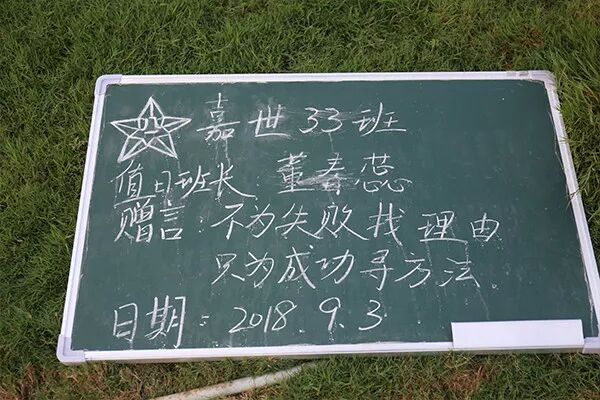 嘉世33班
值日班长：董春蕊
赠言：不为失败找理由
只为成功寻方法
日期：2018.9.3